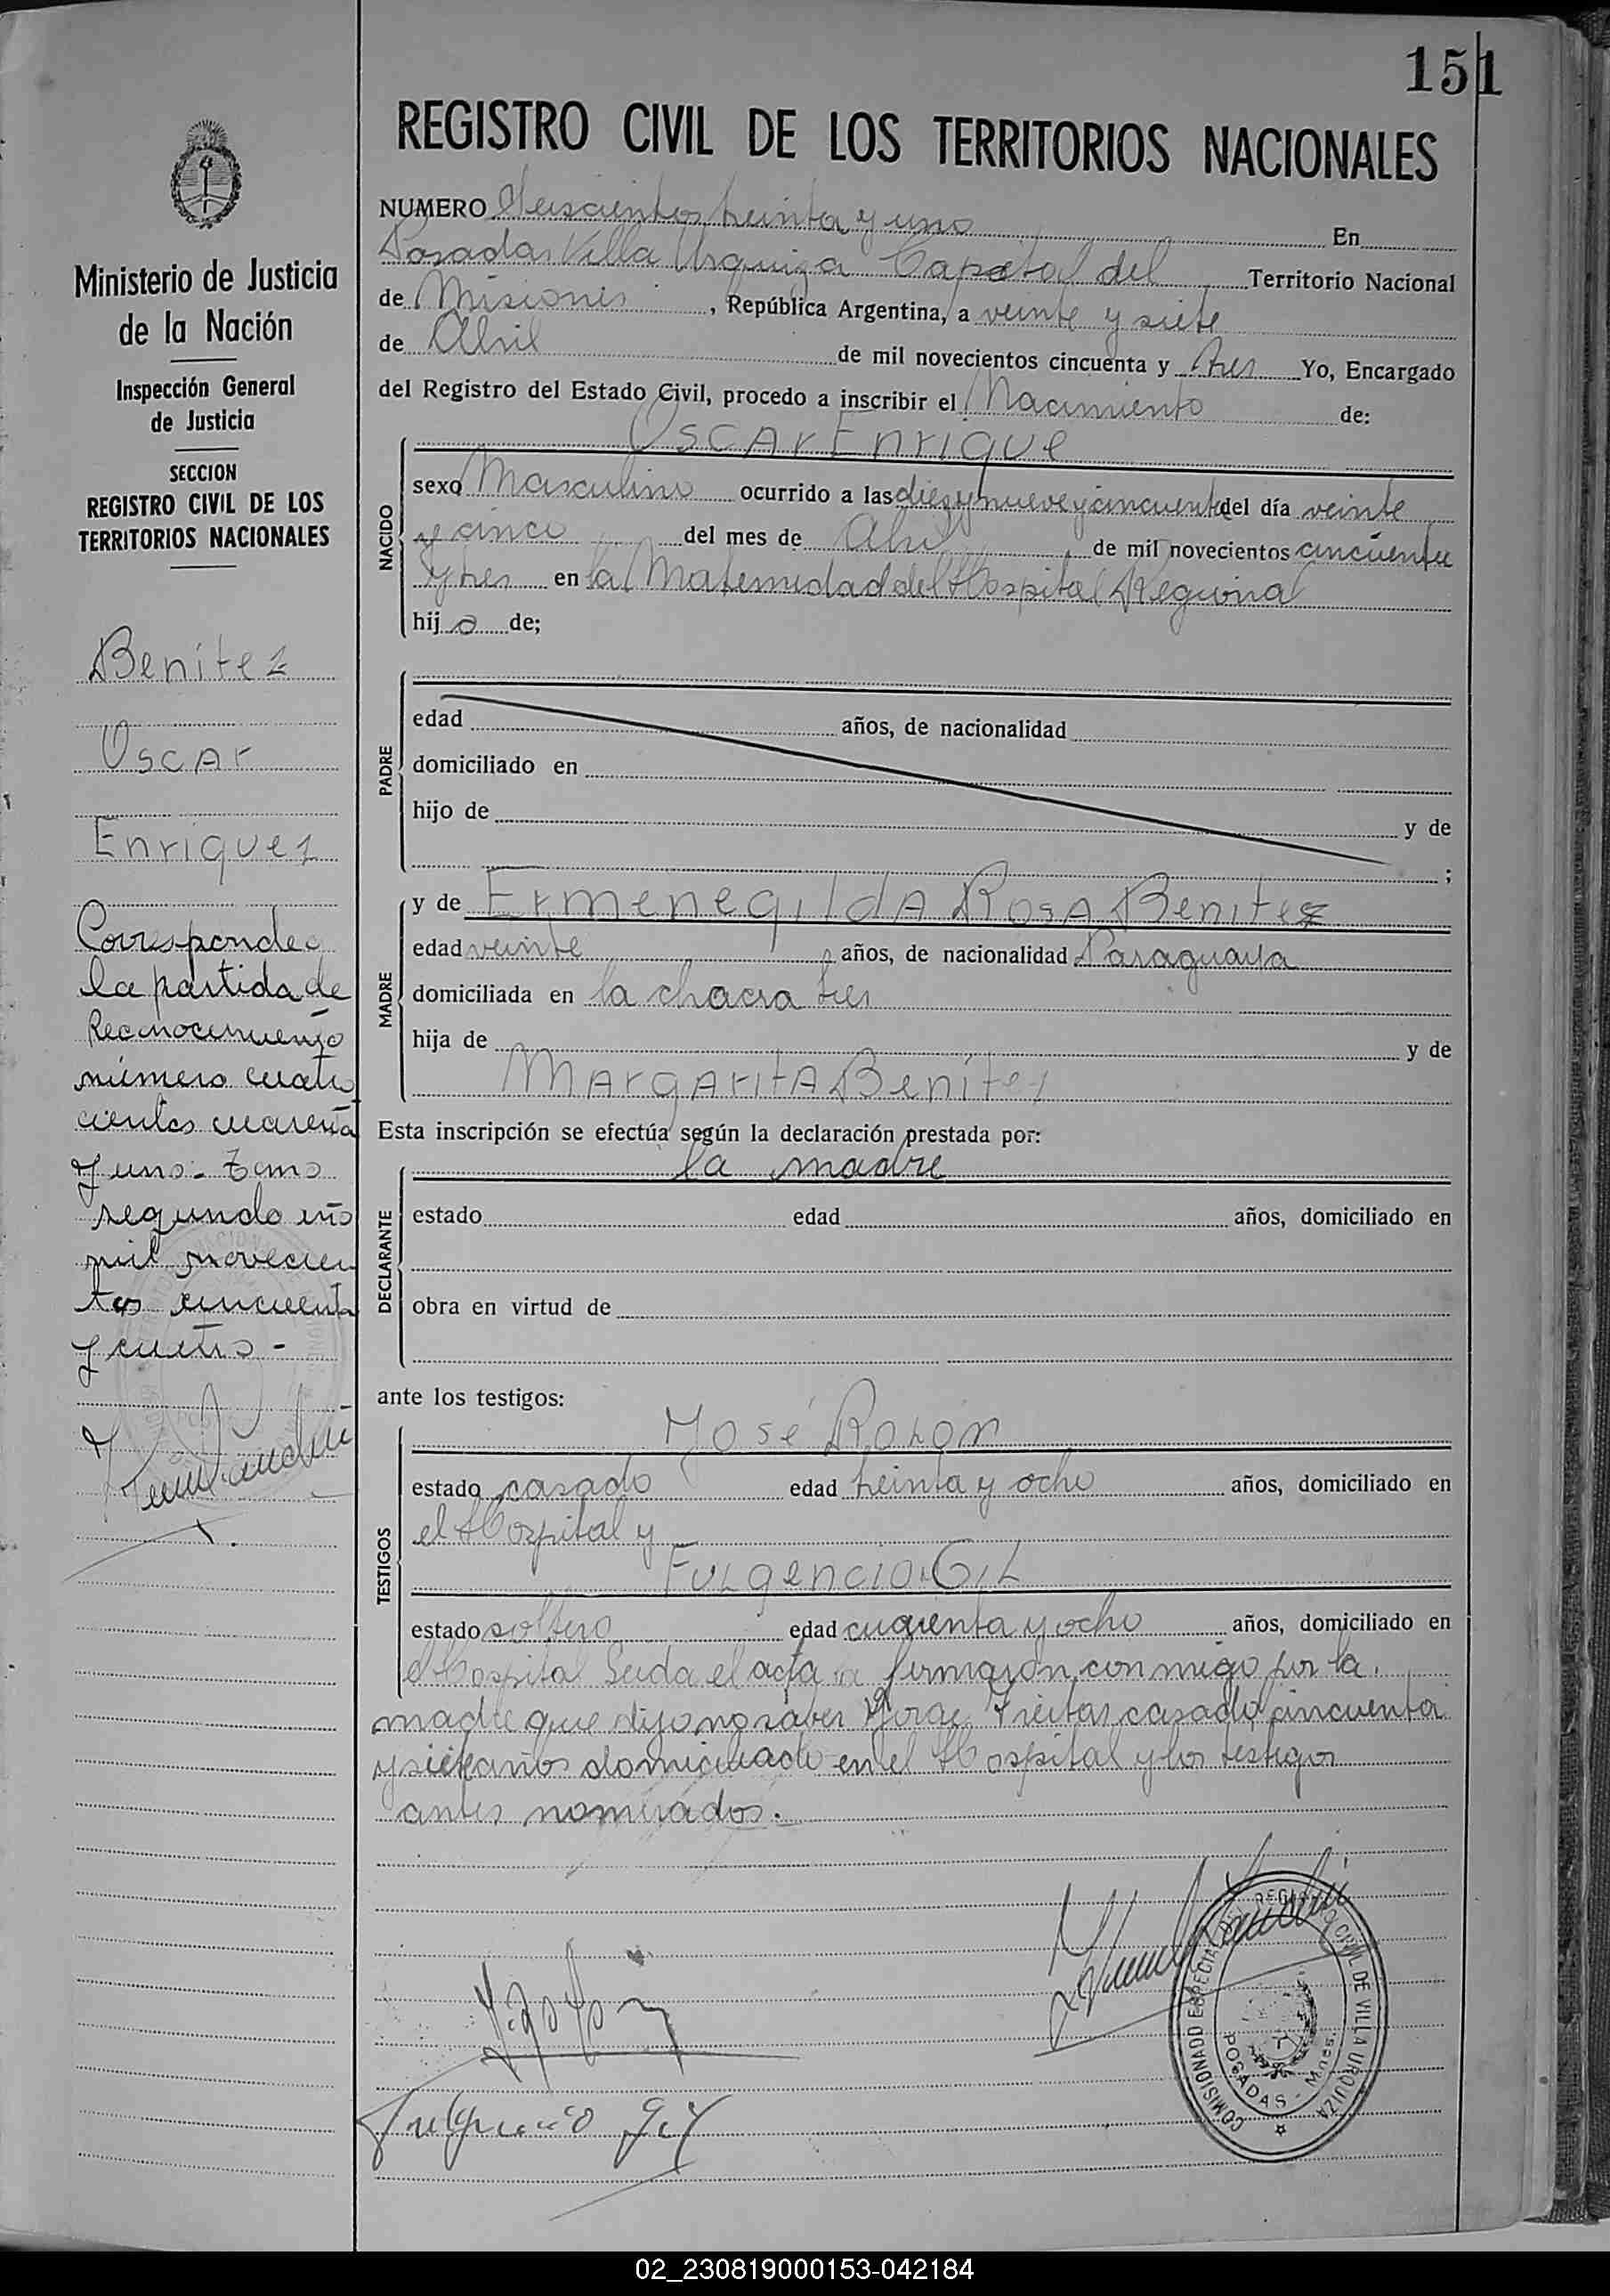 151
REGISTRO CIVIL DE LOS TERRITORIOS NACIONALES
Ministerio de Justicia
de la Nación
Inspección General
de Justicia
SECCION
REGISTRO CIVIL DE LOS
TERRITORIOS NACIONALES
Benitez
Oscar
Enriquez
Corresponde a
la partida de
Reconocimiento
número cuatro
cientos cuarenta
y uno - Tomo
segundo año
mil novecien
tos cincuenta
y cuatro -
NUMERO Seiscientos treinta y uno En
Posadas Villa Urquiza Capital del Territorio Nacional
de Misiones, República Argentina, a veinte y siete
de Abril de mil novecientos cincuenta y tres Yo, Encargado
del Registro del Estado Civil, procedo a inscribir el Nacimiento de:
NACIDO
Oscar Enrique
sexo Masculino ocurrido a las diez y nueve y cincuenta del día veinte
y cinco del mes de Abril de mil novecientos cincuenta
y tres en la Maternidad del Hospital Regional
hijo de;
PADRE
edad años, de nacionalidad
domiciliado en
hijo de y de
;
MADRE
y de Ermenegilda Rosa Benitez
edad veinte años, de nacionalidad Paraguaya
domiciliada en la chacra tres
hija de y de
Margarita Benitez
Esta inscripción se efectúa según la declaración prestada por:
DECLARANTE
la madre
estado edad años, domiciliado en
obra en virtud de
ante los testigos:
TESTIGOS
José Rolón
estado casado edad treinta y ocho años, domiciliado en
el Hospital y
Fulgencio Gil
estado soltero edad cuarenta y ocho años, domiciliado en
el Hospital Leida el acta la firmaron conmigo por la
madre que dijo no saber Jorge Freitas casado cincuenta
y siete años domiciliado en el Hospital y los testigos
antes nombrados.
J. Rolón
Fulgencio Gil
COMISIONADO ESPECIAL DEL REGISTRO CIVIL DE VILLA URQUIZA
POSADAS - Mnes.
02_230819000153-042184